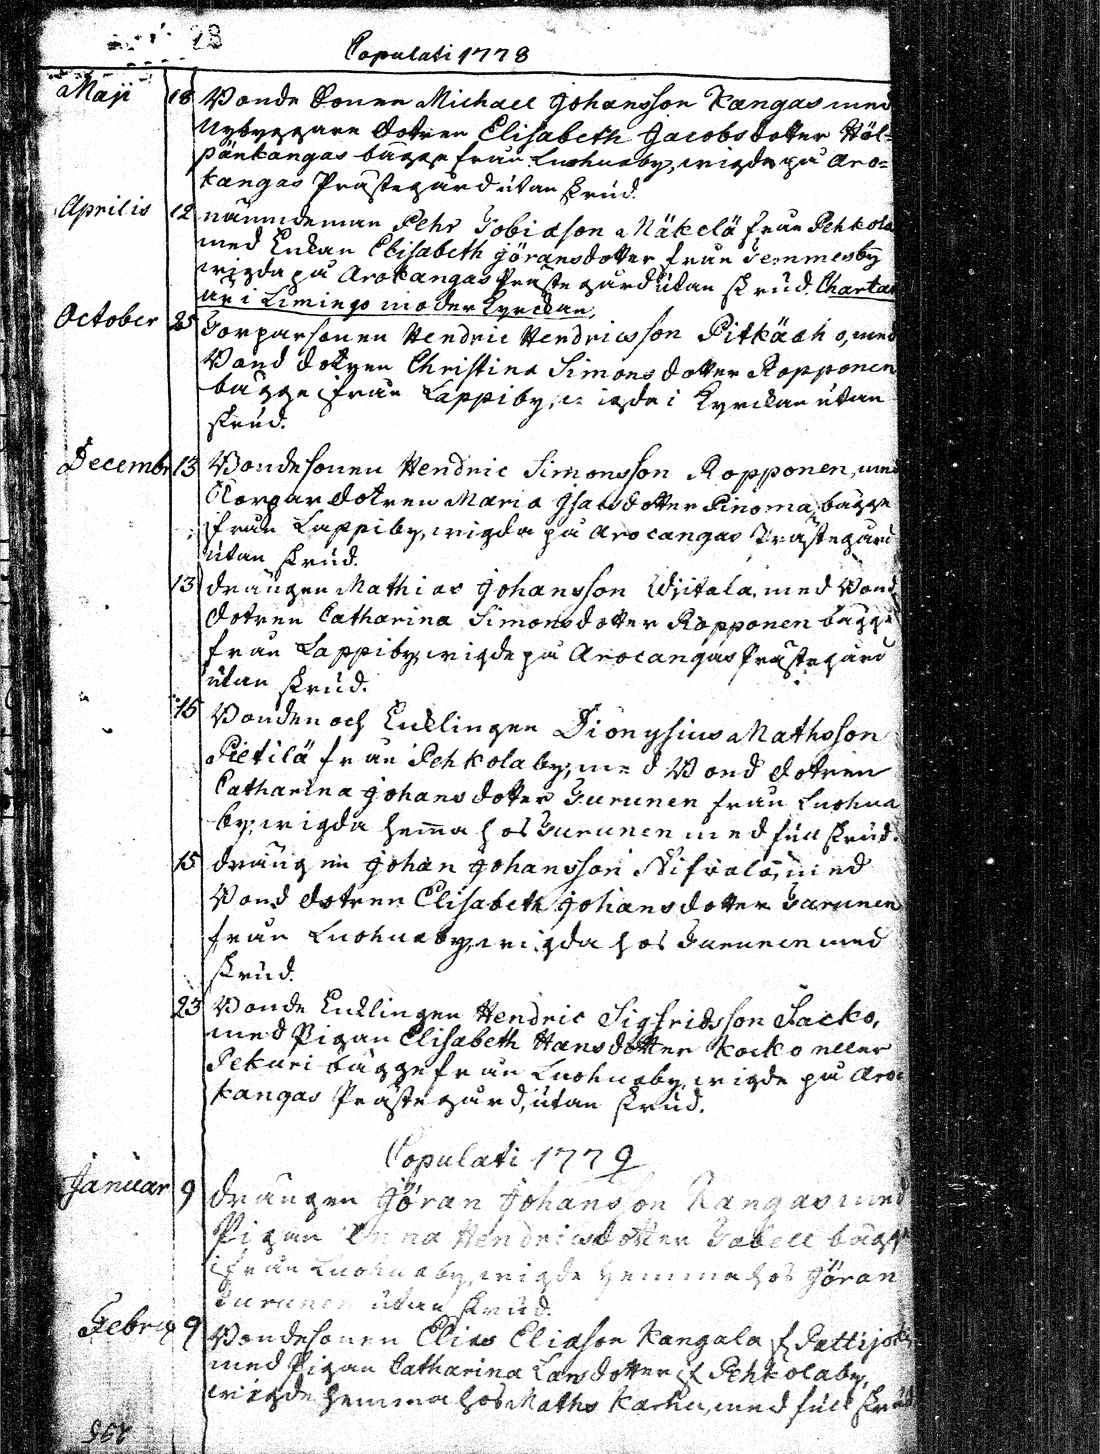 28
Copulati 1778
Maji 18 Bonde Sonen Michael Johansson Kangas med
Nybyggare dotren Elisabeth Jacobsdotter Höl-
pänkangas bägge från Luohuaby, wigde på Aro-
kangas Prästegård utan skrud.
Aprilis 12 nämndeman Pehr Tobiæson Mäkelä från Pehkola
med Enkan Elisabeth Göransdotter från Temmesby
wigda på Arokangas Prästegård utan skrud. Chartan
är i Limingo moderkyrckan.
October 25 Torparsonen Hendric Hendricsson Pitkäaho, med
Bond dotren Christina Simonsdotter Ropponen
bägge ifrån Lappiby, wigda i Kyrckan utan
skrud.
Decembr 13 Bondesonen Hendric Simonsson Ropponen, med
Torpar dotren Maria Isacsdotter Pinoma, bägge
ifrån Lappiby, wigda på Arocangas Prästegård
utan skrud.
13 drängen Mathias Johansson Wjitala, med Bond
dotren Catharina Simonsdotter Ropponen bägge
från Lappiby, wigde på Arocangas Prästegård
utan skrud.
15 Bonden och Encklingen Dionysius Mathsson
Pietilä från Pehkolaby, med Bond dotren
Catharina Johansdotter Turunen från Luohua
by, wigda hemma hos Turunen med full skrud.
15 drängen Johan Johansson med
Bond dotren Elisabeth Johansdotter Turunen
från Luohuaby, wigda hos Turunen med
skrud.
23 Bonde Encklingen Hendric Sigfridsson Sacko,
med Pigan Elisabeth Hansdotter Kocko eller
Pekuri bägge från Luohuaby, wigde på Aro-
kangas Prästegård, utan skrud.
Copulati 1779
Januar 9 drängen Göran Johansson Kangas med
Pigan Anna Hendricsdotter Tabell bägge
ifrån Luohuaby, wigde hemma hos Göran
Turunen utan skrud.
Febru 9 Bondesonen Elias Eliæson Kangala f Pattijoki
med Pigan Catharina Larsdotter f Pehkolaby,
wigde hemma hos Maths Karhu, med full skrud